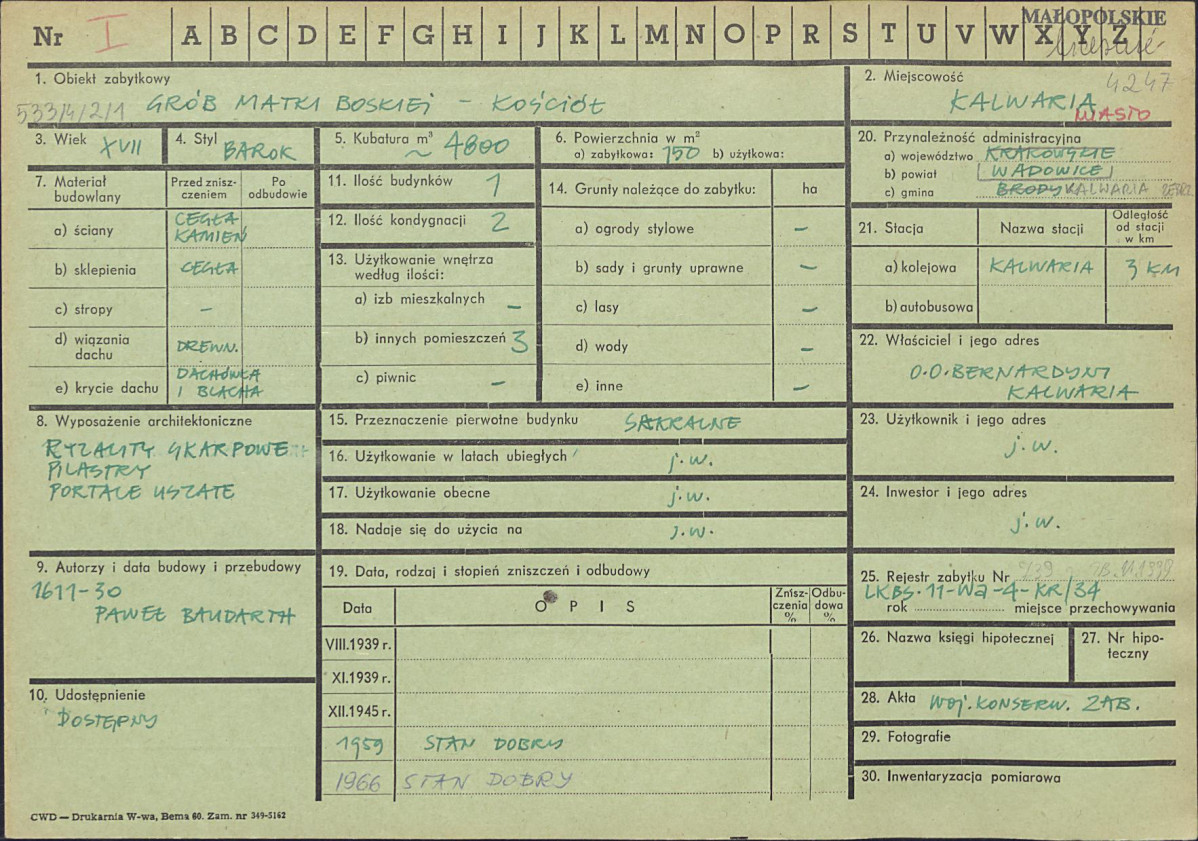 MAŁOPOLSKIE
Nr I A B C D E F G H I J K L M N O P R S T U V W X Y Z
1. Obiekt zabytkowy
533/4/2/1 GRÓB MATKI BOSKIEJ – KOŚCIÓŁ
2. Miejscowość
4247
KALWARIA
MIASTO
3. Wiek XVII
4. Styl BAROK
5. Kubatura m³ ~ 4800
6. Powierzchnia w m²
a) zabytkowa: 750 b) użytkowa:
20. Przynależność administracyjna
a) województwo KRAKOWSKIE
b) powiat WADOWICE
c) gmina BRODY KALWARIA ZEBRZ
7. Materiał budowlany
Przed znisz-
czeniem
Po
odbudowie
a) ściany CEGŁA
KAMIEŃ
b) sklepienia CEGŁA
c) stropy –
d) wiązania
dachu DREWN.
e) krycie dachu DACHÓWKA
I BLACHA
11. Ilość budynków 1
12. Ilość kondygnacji 2
13. Użytkowanie wnętrza
według ilości:
a) izb mieszkalnych –
b) innych pomieszczeń 3
c) piwnic –
14. Grunty należące do zabytku: ha
a) ogrody stylowe –
b) sady i grunty uprawne –
c) lasy –
d) wody –
e) inne –
21. Stacja Nazwa stacji
Odległość
od stacji
w km
a) kolejowa KALWARIA 3 KM
b) autobusowa
22. Właściciel i jego adres
O.O. BERNARDYNI
KALWARIA
8. Wyposażenie architektoniczne
RYZALITY SKARPOWE
PILASTRY
PORTALE USZATE
15. Przeznaczenie pierwotne budynku SAKRALNE
16. Użytkowanie w latach ubiegłych j.w.
17. Użytkowanie obecne j.w.
18. Nadaje się do użycia na j.w.
23. Użytkownik i jego adres
j.w.
24. Inwestor i jego adres
j.w.
9. Autorzy i data budowy i przebudowy
1611-30
PAWEŁ BAUDARTH
10. Udostępnienie
DOSTĘPNY
19. Data, rodzaj i stopień zniszczeń i odbudowy
Data OPIS
Znisz-
czenia
%
Odbu-
dowa
%
VIII.1939 r.
XI.1939 r.
XII.1945 r.
1959 STAN DOBRY
1966 STAN DOBRY
25. Rejestr zabytku Nr
LKBS-11-Wa-4-KR/34
rok miejsce przechowywania
26. Nazwa księgi hipotecznej
27. Nr hipo-
teczny
28. Akta WOJ. KONSERW. ZAB.
29. Fotografie
30. Inwentaryzacja pomiarowa
CWD — Drukarnia W-wa, Bema 60. Zam. nr 349-5162